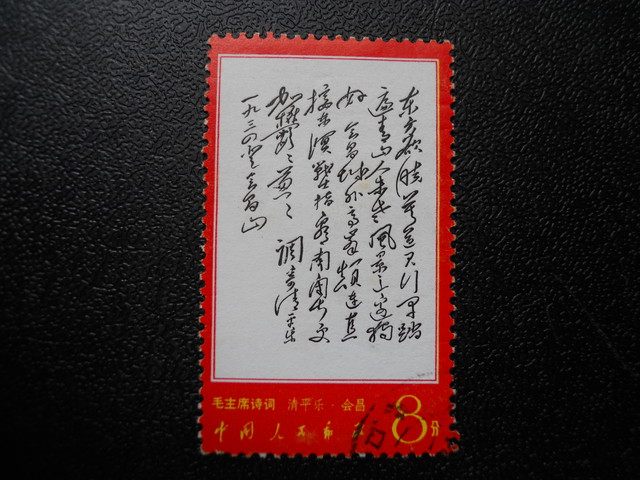 东方欲晓莫道君行早踏
遍青山人未老风景这边独
好 会昌城外高峰颠连直
接东溟战士指看南粤更
加郁々葱々 调寄清平乐
一九三四登会昌山
毛主席诗词 清平乐·会昌
中国人民邮政 8分